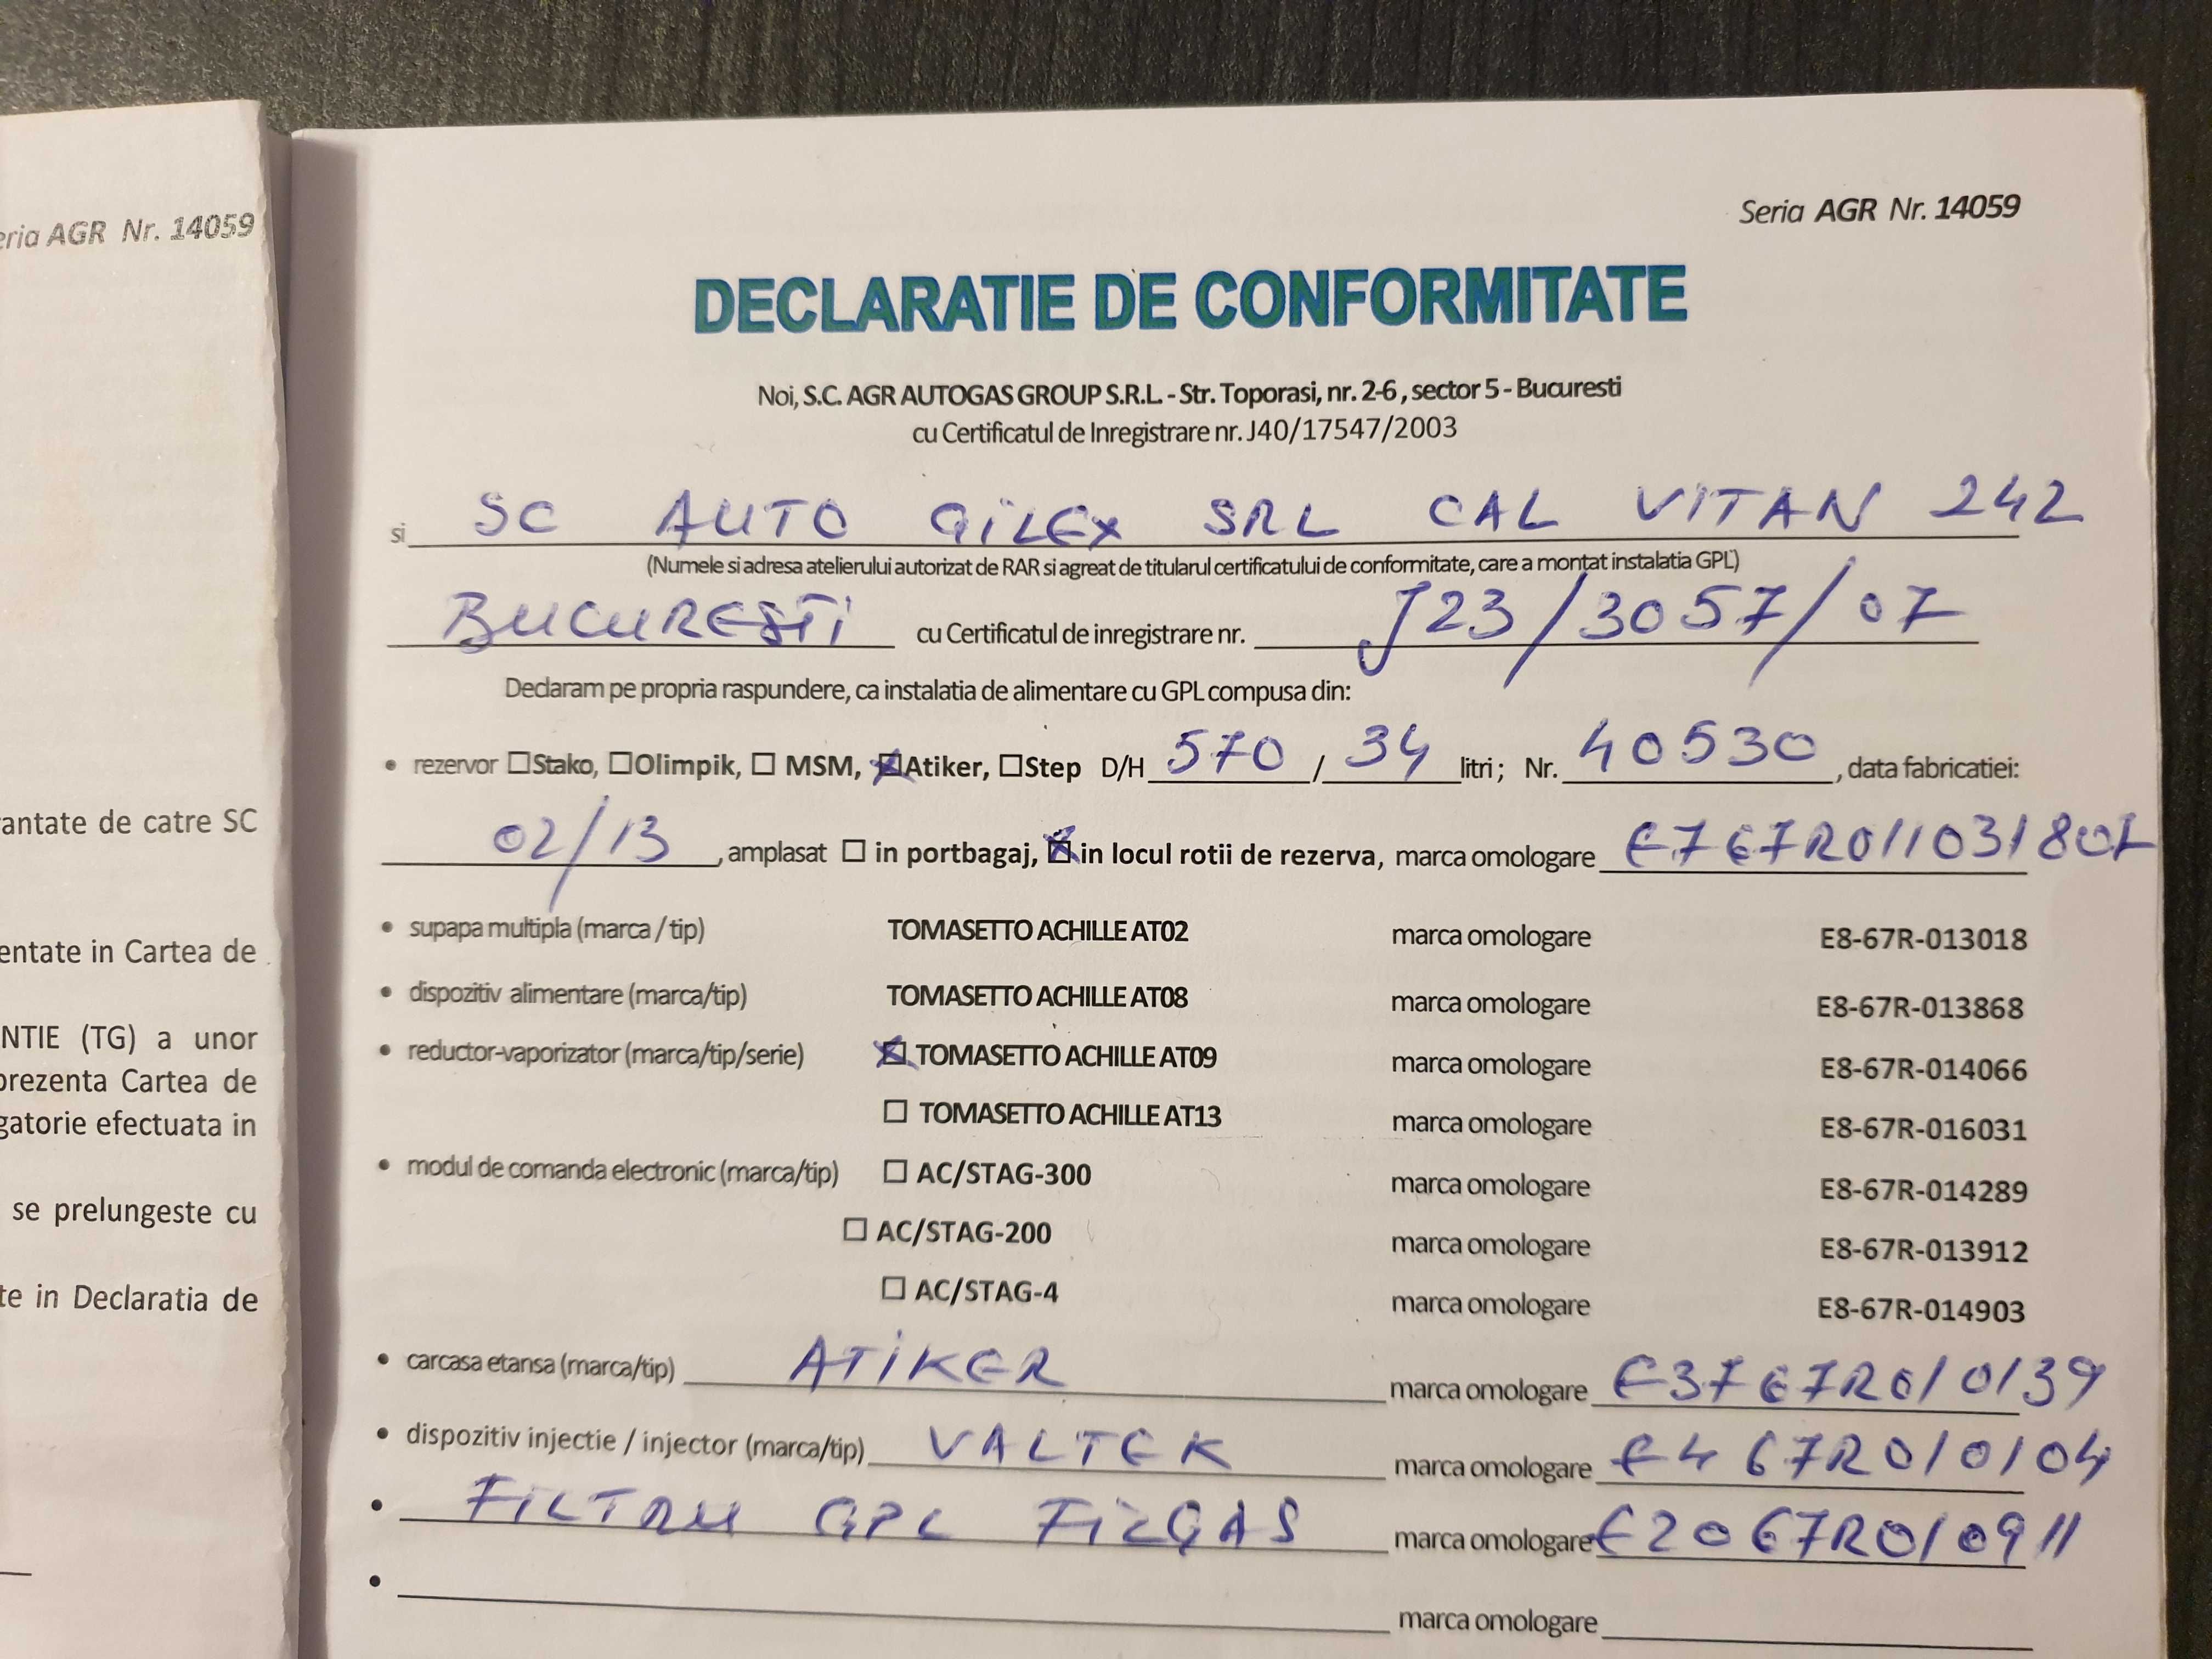 eria AGR Nr. 14059
antate de catre SC
entate in Cartea de
NTIE (TG) a unor
prezenta Cartea de
gatorie efectuata in
se prelungeste cu
te in Declaratia de
Seria AGR Nr. 14059
DECLARATIE DE CONFORMITATE
Noi, S.C. AGR AUTOGAS GROUP S.R.L. - Str. Toporasi, nr. 2-6 , sector 5 - Bucuresti
cu Certificatul de Inregistrare nr. J40/17547/2003
si SC AUTO GILEX SRL CAL VITAN 242
(Numele si adresa atelierului autorizat de RAR si agreat de titularul certificatului de conformitate, care a montat instalatia GPL)
BUCURESTI cu Certificatul de inregistrare nr. J23/3057/07
Declaram pe propria raspundere, ca instalatia de alimentare cu GPL compusa din:
• rezervor ☐ Stako, ☐ Olimpik, ☐ MSM, ☒ Atiker, ☐ Step D/H 570 / 34 litri ; Nr. 40530 , data fabricatiei:
02/13 , amplasat ☐ in portbagaj, ☒ in locul rotii de rezerva, marca omologare E767R01103180L
• supapa multipla (marca / tip) TOMASETTO ACHILLE AT02 marca omologare E8-67R-013018
• dispozitiv alimentare (marca/tip) TOMASETTO ACHILLE AT08 marca omologare E8-67R-013868
• reductor-vaporizator (marca/tip/serie) ☒ TOMASETTO ACHILLE AT09 marca omologare E8-67R-014066
☐ TOMASETTO ACHILLE AT13 marca omologare E8-67R-016031
• modul de comanda electronic (marca/tip) ☐ AC/STAG-300 marca omologare E8-67R-014289
☐ AC/STAG-200 marca omologare E8-67R-013912
☐ AC/STAG-4 marca omologare E8-67R-014903
• carcasa etansa (marca/tip) ATIKER marca omologare E3767R010139
• dispozitiv injectie / injector (marca/tip) VALTEK marca omologare E4 67R010104
• FILTRU GPL FILGAS marca omologare E2067R010911
• marca omologare